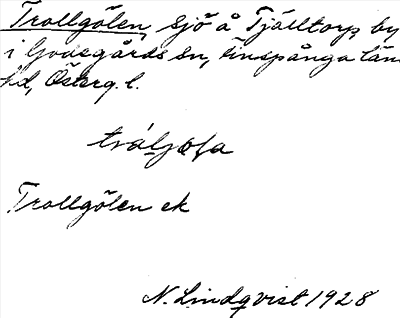 Trollgölen, sjö å Tjälltorp by
i Godegårds sn, Finspånga län
hd, Österg. l.
Trollgölen ek
N. Lindqvist 1928